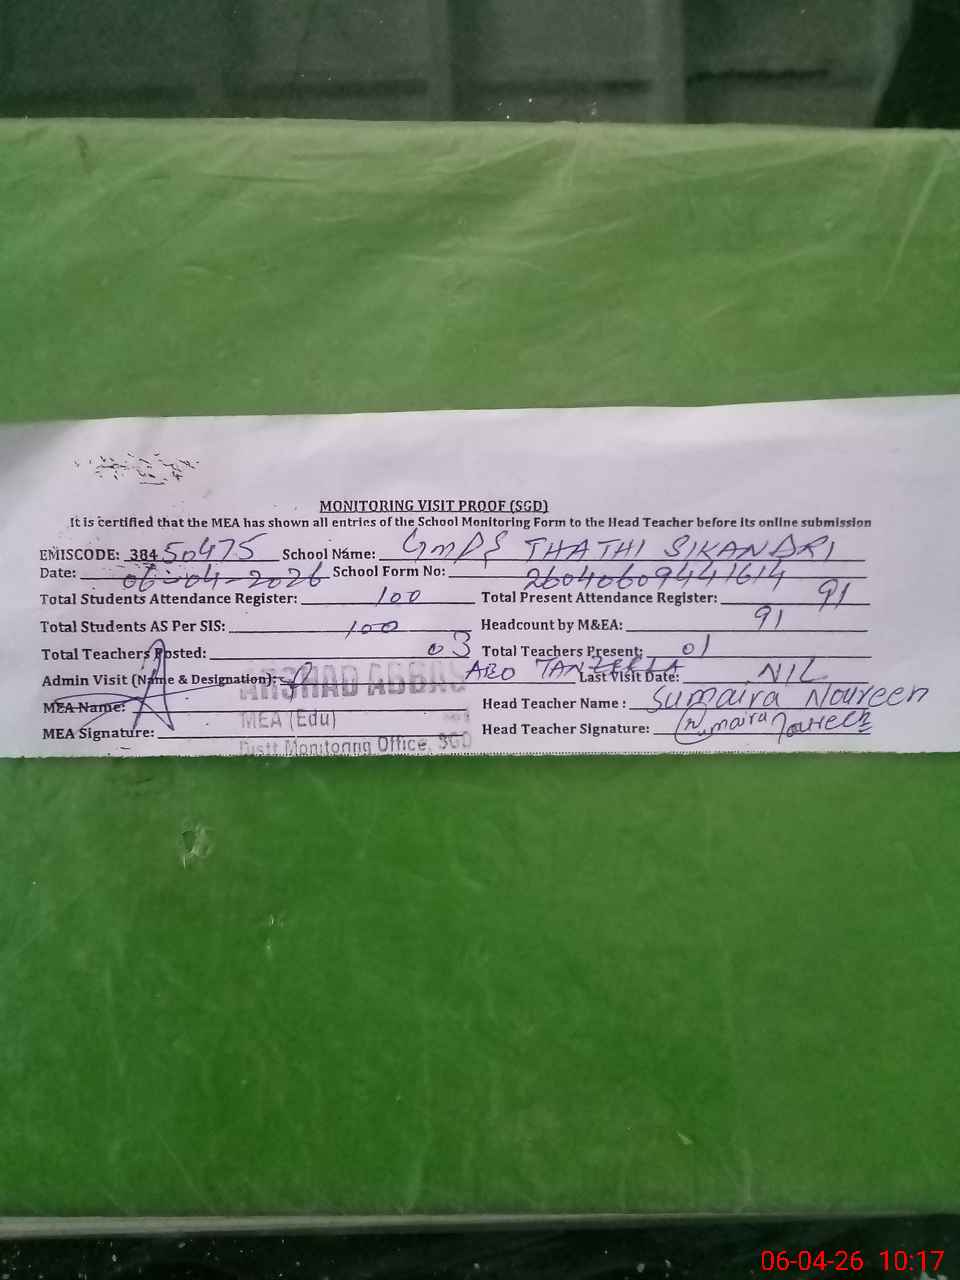 MONITORING VISIT PROOF (SGD)
It is certified that the MEA has shown all entries of the School Monitoring Form to the Head Teacher before its online submission
EMISCODE: 38450475 School Name: GMPS THATHI SIKANDRI
Date: 06-04-2026 School Form No: 26040609441614
Total Students Attendance Register: 100 Total Present Attendance Register: 91
Total Students AS Per SIS: 100 Headcount by M&EA: 91
Total Teachers Posted: 03 Total Teachers Present: 01
Admin Visit (Name & Designation): AEO Last Visit Date: NIL
ARSHAD ABBAS
MEA Name: Head Teacher Name : Sumaira Noureen
MEA (Edu)
MEA Signature: Head Teacher Signature: Sumaira Noureen
Distt Monitoring Office, SGD
06-04-26 10:17